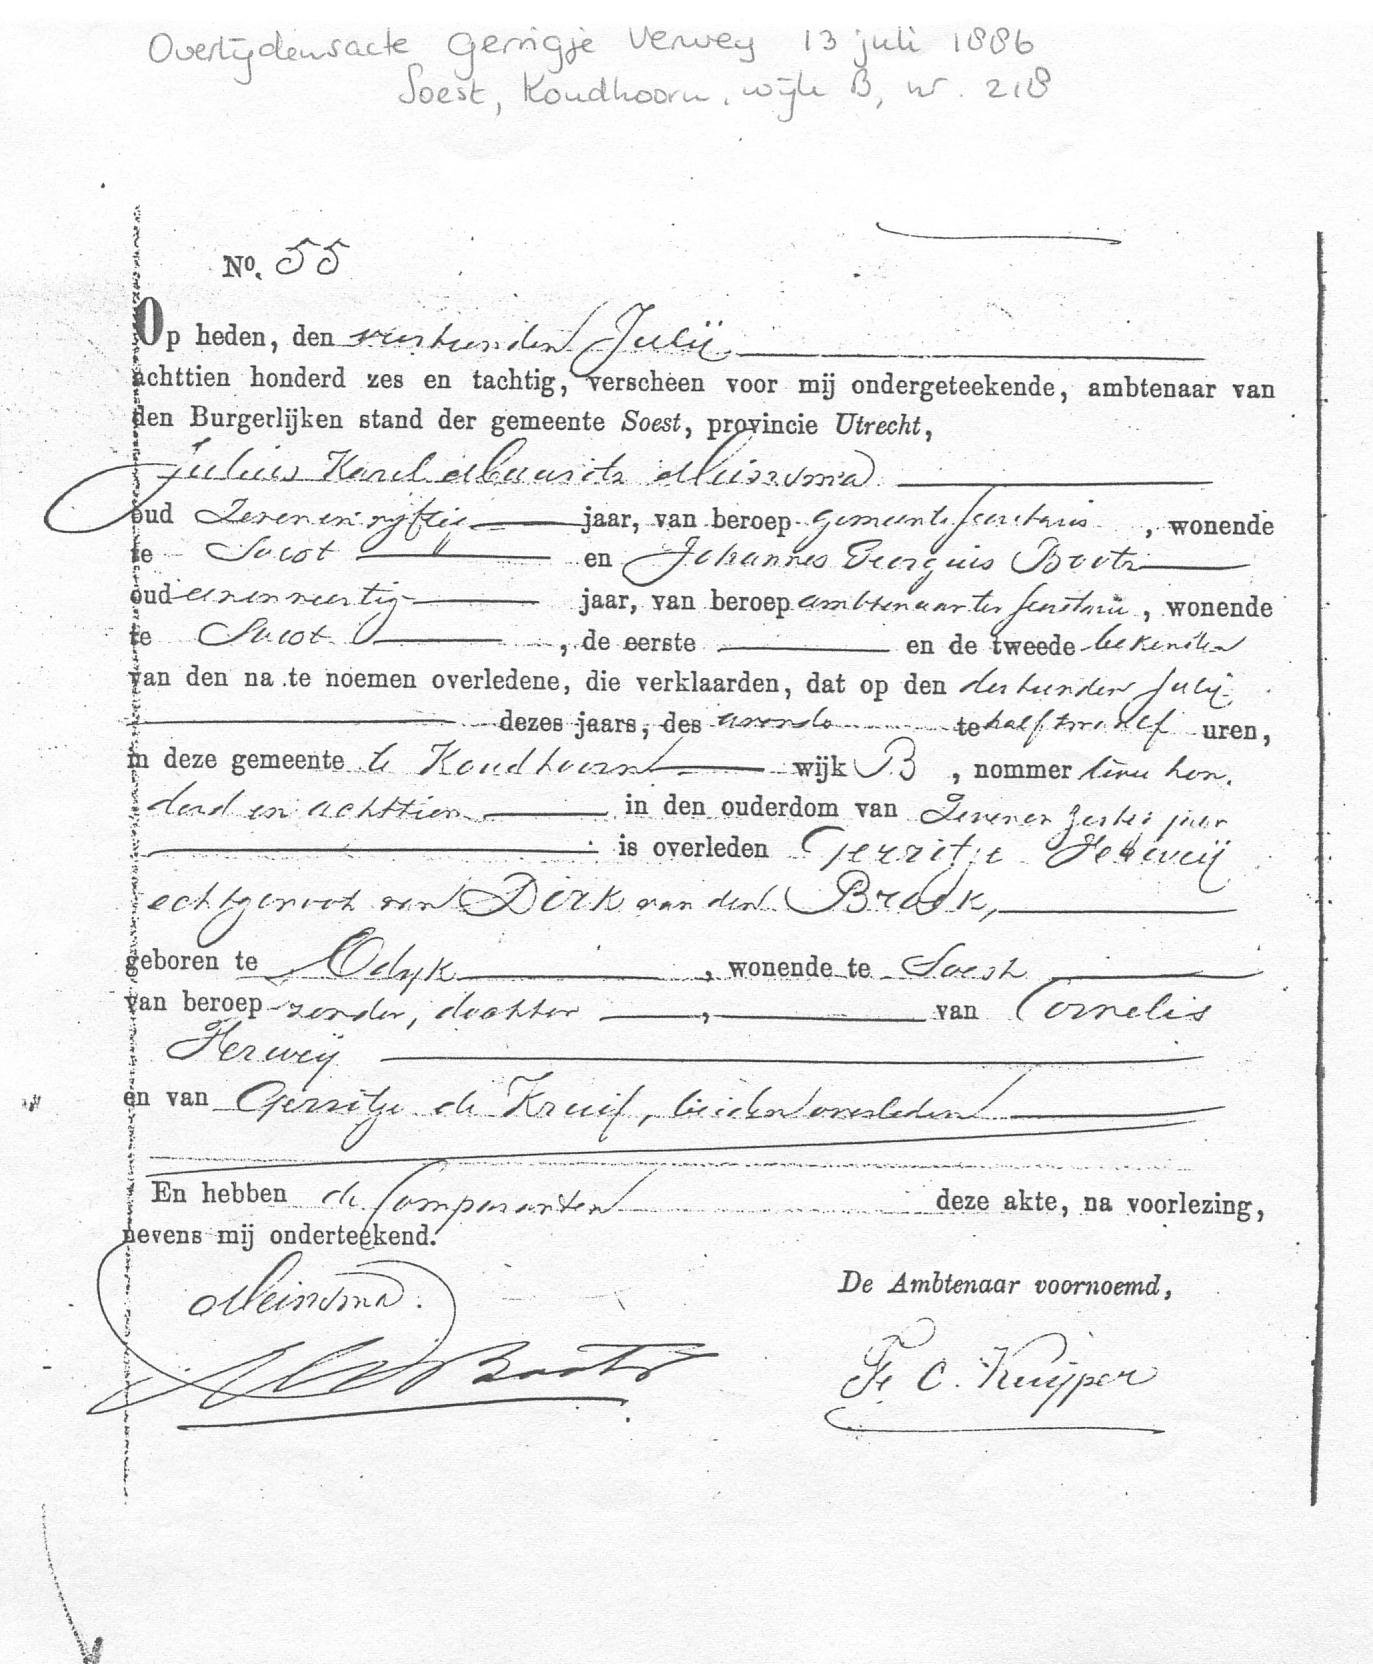 Overlijdensacte Gerrigje Verwey 13 juli 1886
Soest, Koudhoorn, wijk B, nr. 218
No. 55
Op heden, den veertienden Julij
achttien honderd zes en tachtig, verscheen voor mij ondergeteekende, ambtenaar van
den Burgerlijken stand der gemeente Soest, provincie Utrecht,
Julius Karel Maurits Meinsma
oud Zeven en vijftig jaar, van beroep gemeente secretaris, wonende
te Soest en Johannes Georgius Boots
oud een en veertig jaar, van beroep ambtenaar ter secretarie, wonende
te Soest, de eerste en de tweede bekenden
van den na te noemen overledene, die verklaarden, dat op den dertienden Julij
dezes jaars, des avonds te half twaalf uren,
in deze gemeente te Koudhoorn wijk B, nommer twee hon.
derd en achttien in den ouderdom van Zeven en zestig jaar
is overleden Gerritje Herweij
echtgenoot van Dirk van den Broek,
geboren te Odijk, wonende te Soest
van beroep zonder, dochter, van Cornelis
Herweij
en van Gerritje de Kruif, beiden overleden
En hebben de Comparanten deze akte, na voorlezing,
nevens mij onderteekend.
De Ambtenaar voornoemd,
Meinsma.
Boots
F. C. Kuijper